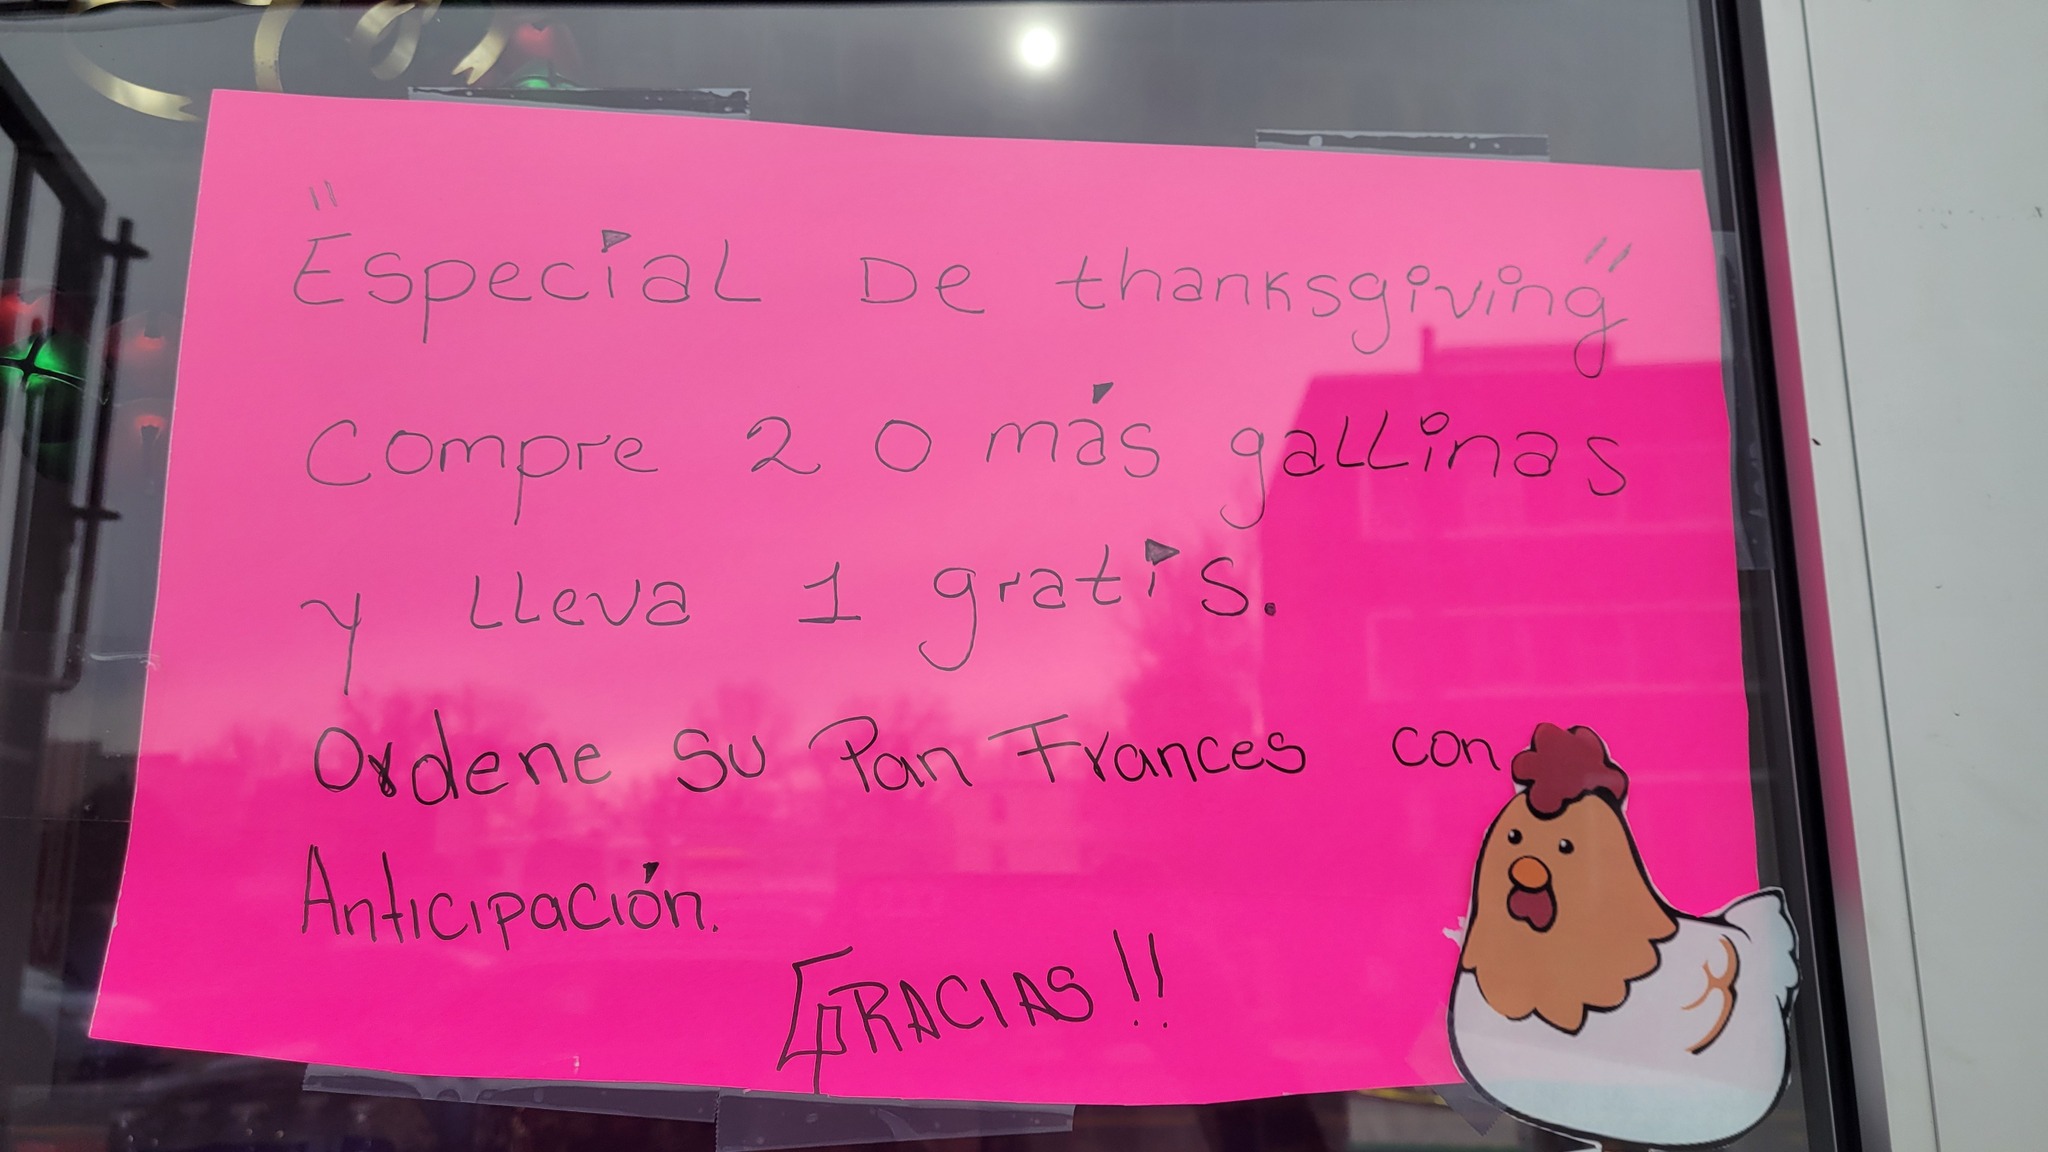 "Especial De thanksgiving"
Compre 2 o más gallinas
y lleva 1 gratis.
Ordene su Pan Frances con
Anticipación.
GRACIAS!!